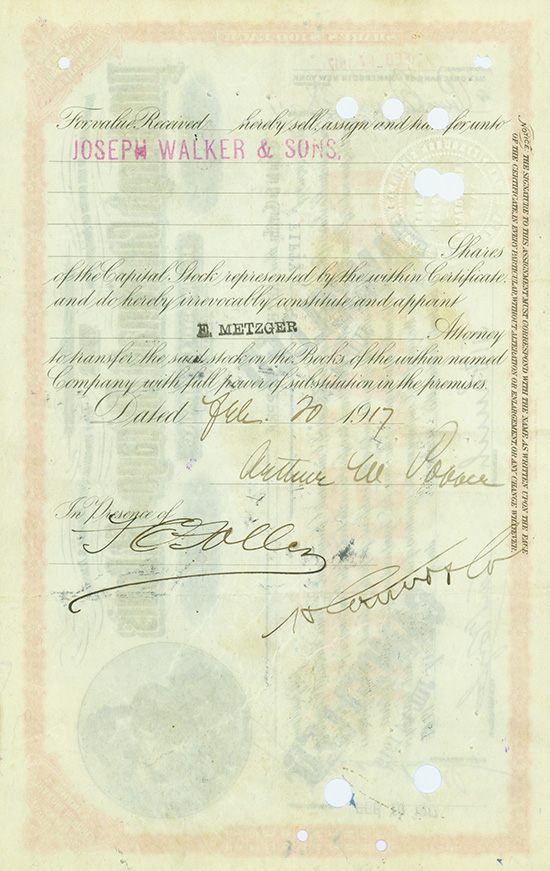 For value Received hereby sell, assign and transfer unto
JOSEPH WALKER & SONS.
Shares
of the Capital Stock represented by the within Certificate,
and do hereby irrevocably constitute and appoint
E. METZGER Attorney
to transfer the said stock on the Books of the within named
Company with full power of substitution in the premises.
Dated Feb. 20 1917
Arthur W.
In Presence of
NOTICE. THE SIGNATURE TO THIS ASSIGNMENT MUST CORRESPOND WITH THE NAME AS WRITTEN UPON THE FACE
OF THE CERTIFICATE IN EVERY PARTICULAR WITHOUT ALTERATION OR ENLARGEMENT, OR ANY CHANGE WHATEVER.